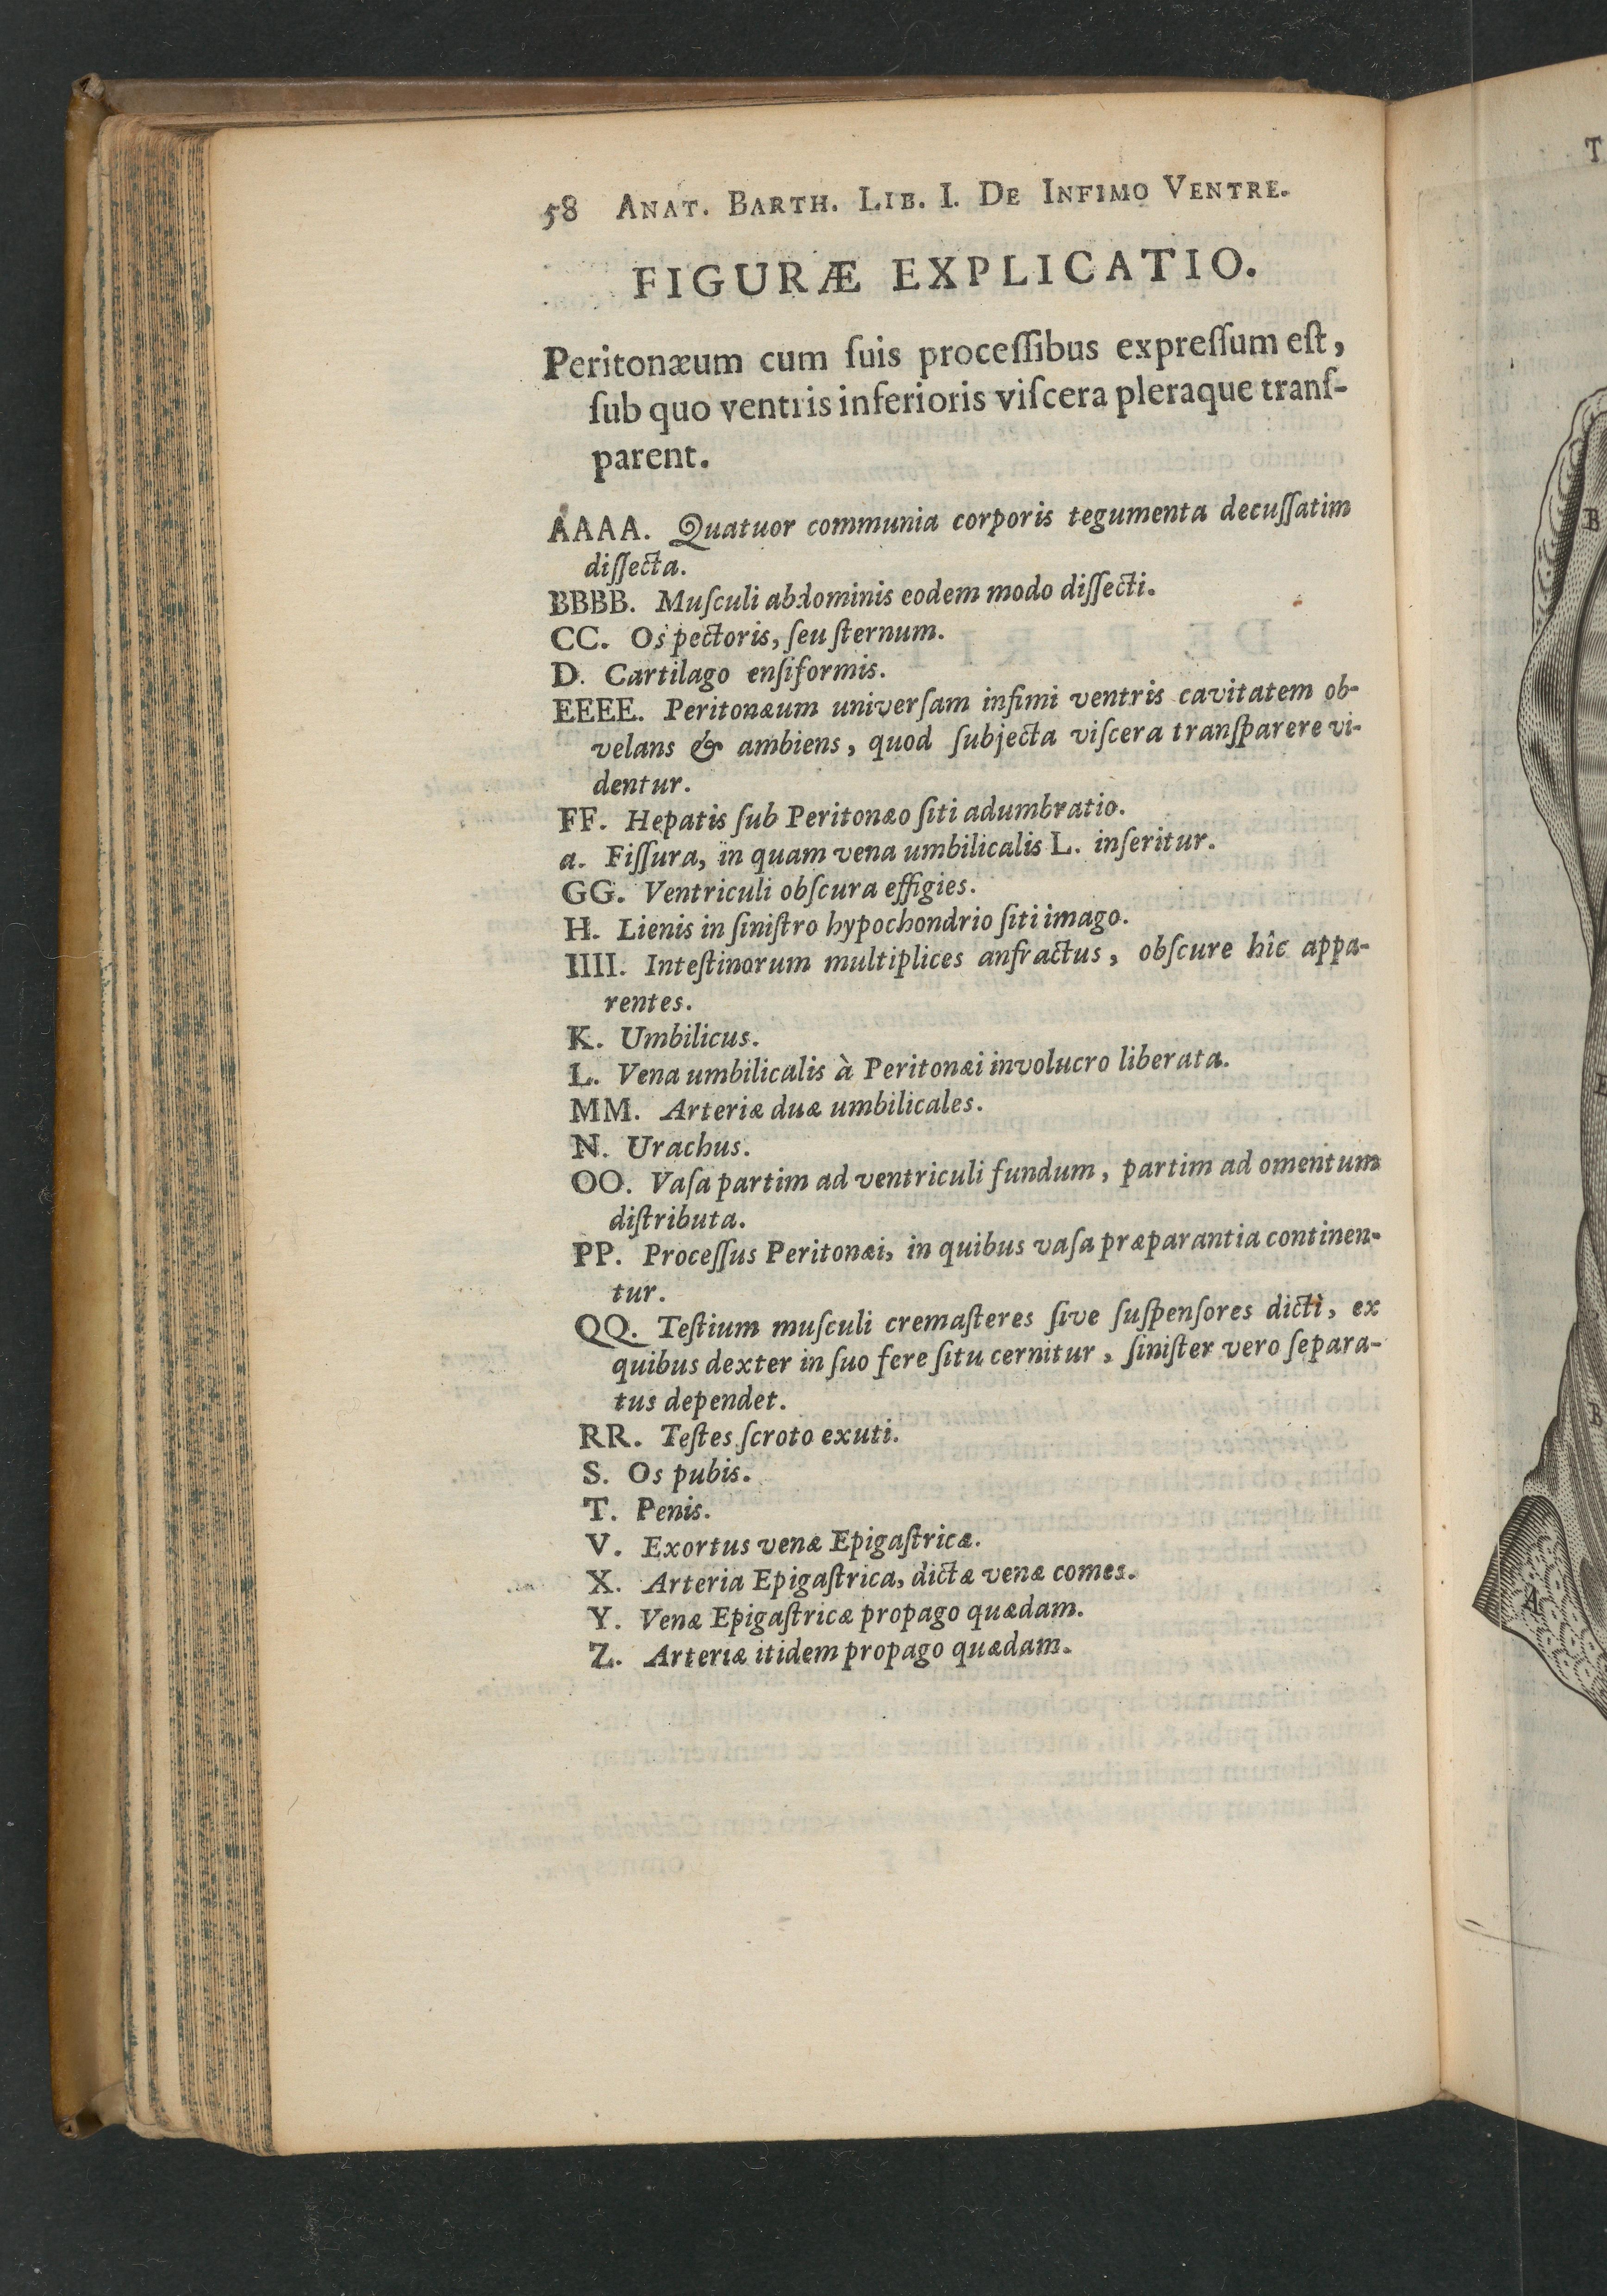 58 ANAT. BARTH. LIB. I. DE INFIMO VENTRE.
FIGURÆ EXPLICATIO.
Peritonæum cum ſuis proceſſibus expreſſum eſt,
ſub quo ventris inferioris viſcera pleraque tranſ-
parent.
AAAA. Quatuor communia corporis tegumenta decuſſatim
diſſecta.
BBBB. Muſculi abdominis eodem modo diſſecti.
CC. Os pectoris, ſeu ſternum.
D. Cartilago enſiformis.
EEEE. Peritonæum univerſam infimi ventris cavitatem ob-
velans & ambiens, quod ſubjecta viſcera tranſparere vi-
dentur.
FF. Hepatis ſub Peritonæo ſiti adumbratio.
a. Fiſſura, in quam vena umbilicalis L. inſeritur.
GG. Ventriculi obſcura effigies.
H. Lienis in ſiniſtro hypochondrio ſiti imago.
IIII. Inteſtinorum multiplices anfractus, obſcure hîc appa-
rentes.
K. Umbilicus.
L. Vena umbilicalis à Peritonæi involucro liberata.
MM. Arteriæ duæ umbilicales.
N. Urachus.
OO. Vaſa partim ad ventriculi fundum, partim ad omentum
diſtributa.
PP. Proceſſus Peritonæi, in quibus vaſa præparantia continen-
tur.
QQ. Teſtium muſculi cremaſteres ſive ſuſpenſores dicti, ex
quibus dexter in ſuo fere ſitu cernitur, ſiniſter vero ſepara-
tus dependet.
RR. Teſtes ſcroto exuti.
S. Os pubis.
T. Penis.
V. Exortus venæ Epigaſtricæ.
X. Arteria Epigaſtrica, dictæ venæ comes.
Y. Venæ Epigaſtricæ propago quædam.
Z. Arteriæ itidem propago quædam.
T
B
E
B
A